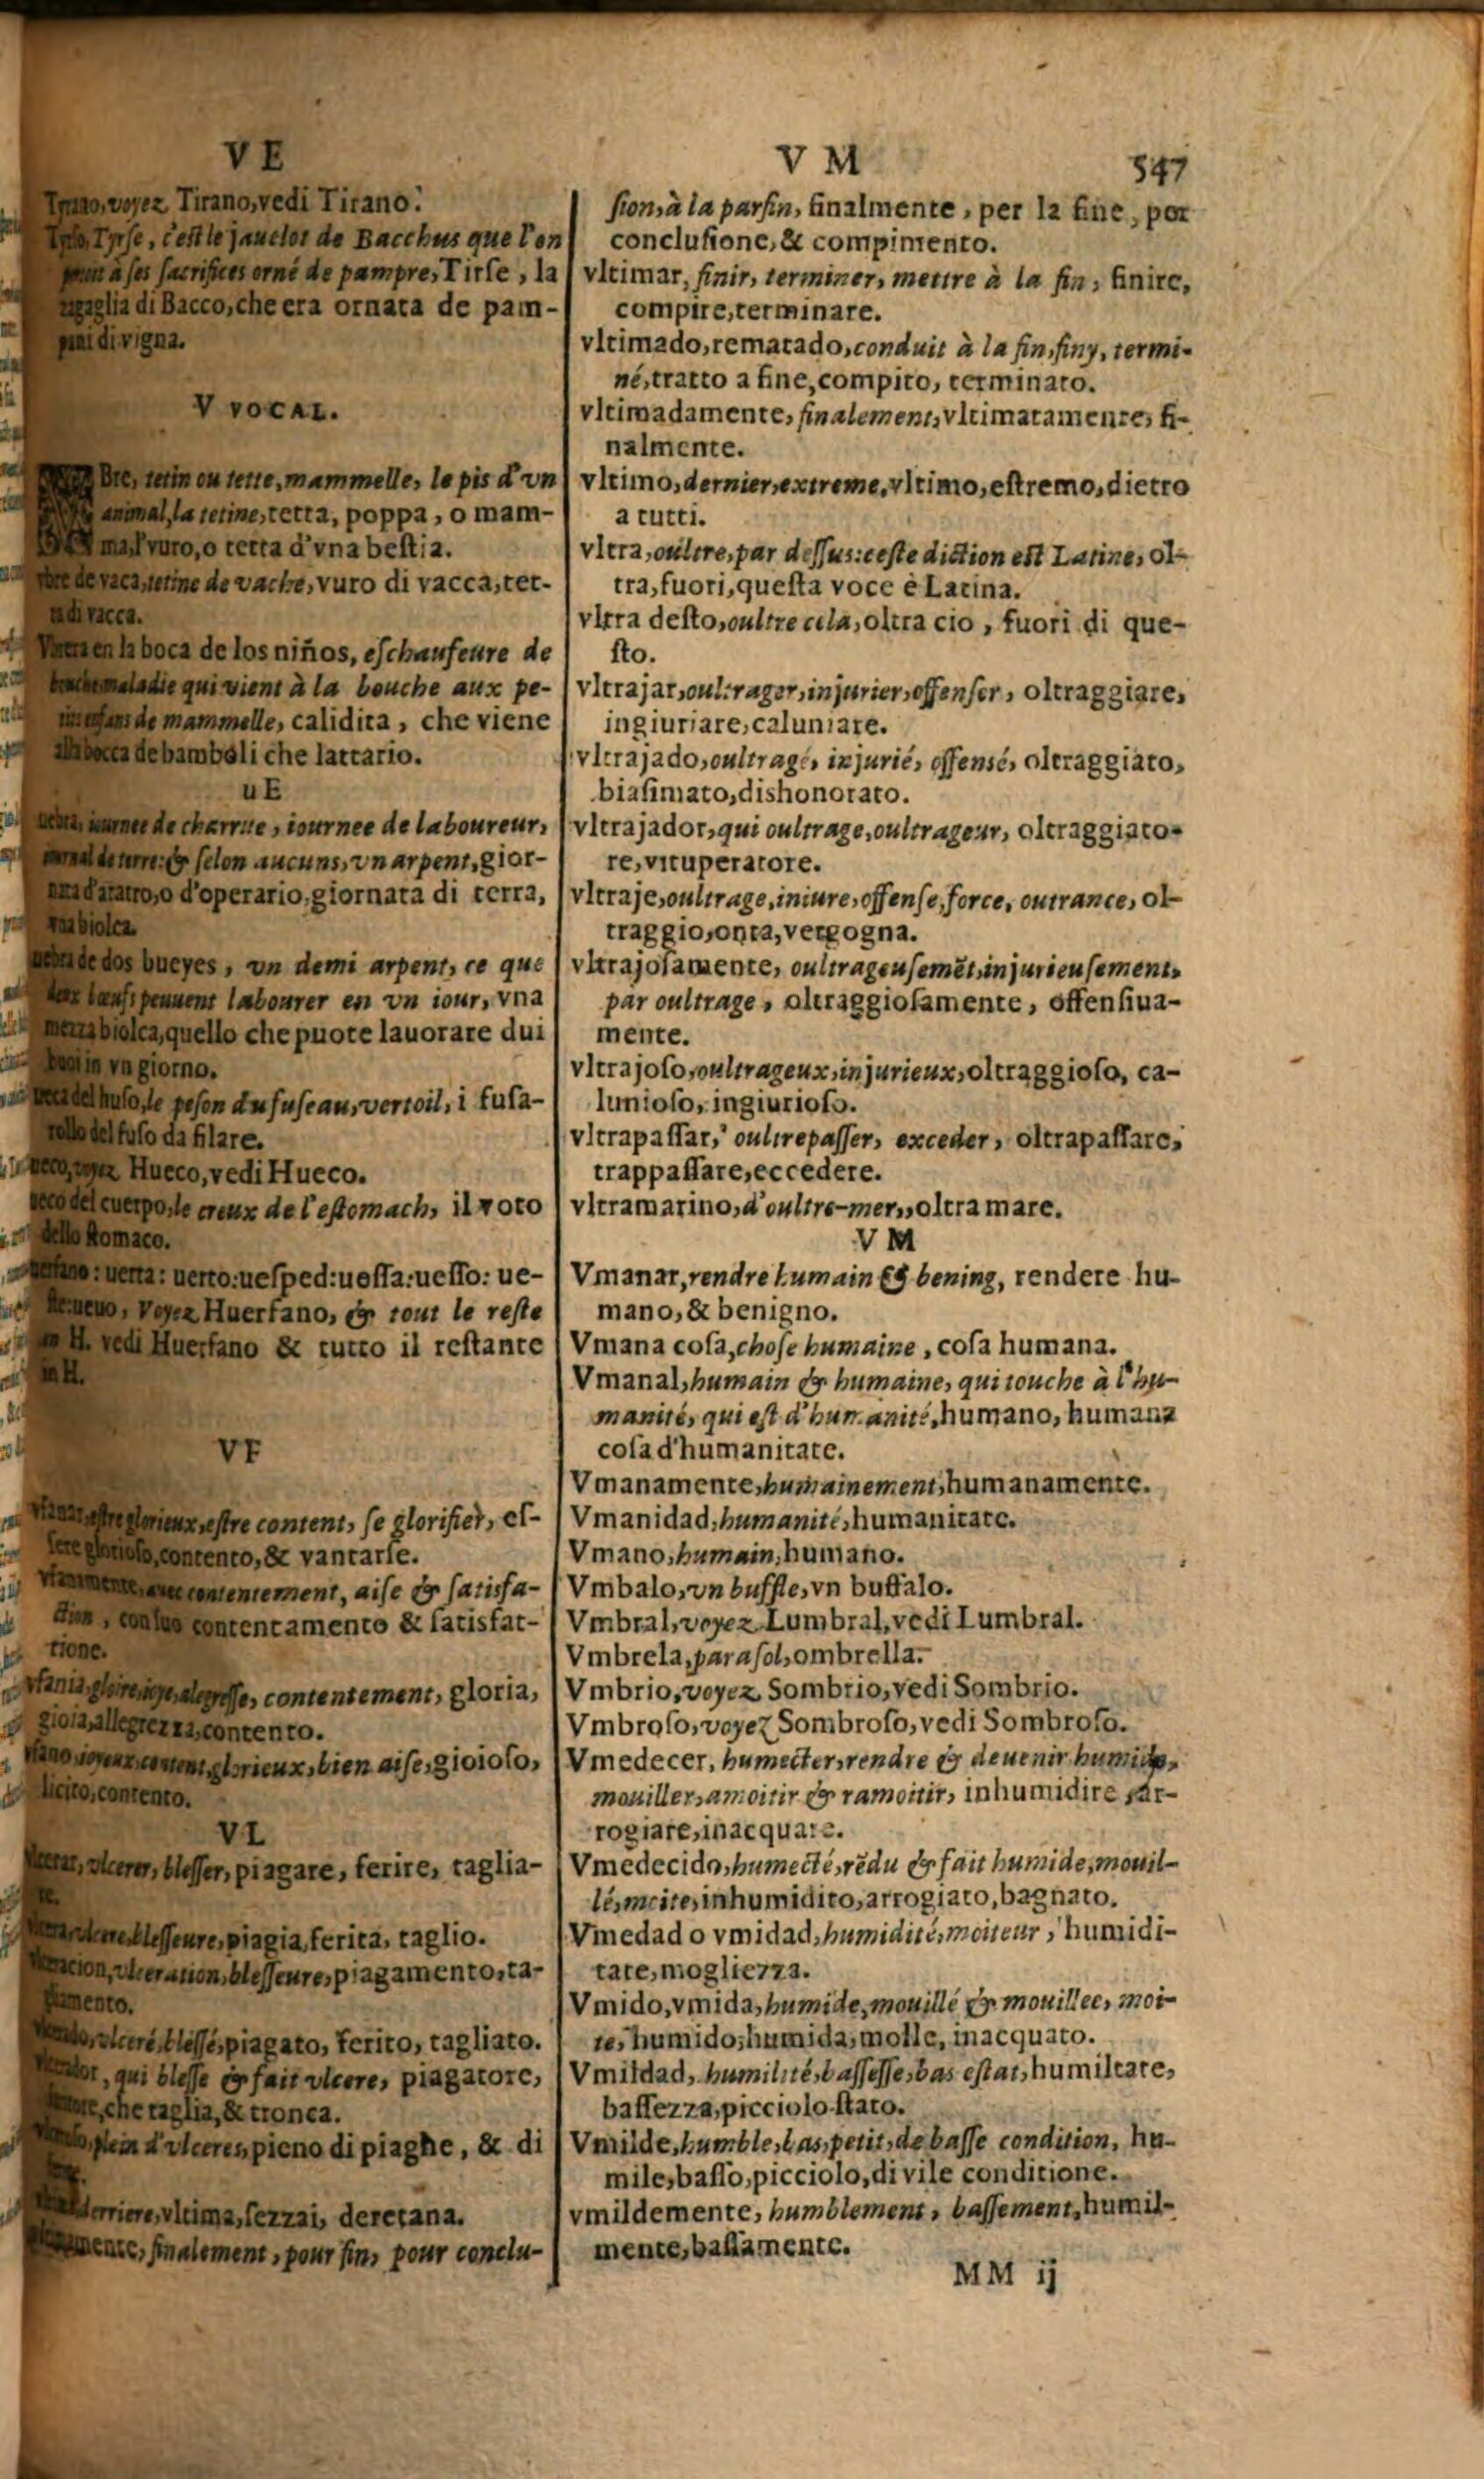 VE
Tirano, vedi Tirano.
Tyrſe, c'eſt le jauelot de Bacchus que l'on
à ſes ſacrifices orné de pampre, Tirſe, la
zagaglia di Bacco, che era ornata de pam-
pini di vigna.
V VOCAL.
Bre, tetin ou tette, mammelle, le pis d'vn
animal, la tetine, tetta, poppa, o mam-
ma, l'vuro, o tetta d'vna beſtia.
vbre de vaca, tetine de vache, vuro di vacca, tet-
ta di vacca.
en la boca de los niños, eſchaufeure de
bouche, maladie qui vient à la bouche aux pe-
tits enfans de mammelle, calidita, che viene
alla bocca de bamboli che lattario.
uE
uebra, iournee de charrue, iournee de laboureur,
iornal de terre: & ſelon aucuns, vn arpent, gior-
nata d'aratro, o d'operario, giornata di terra,
vna biolca.
uebra de dos bueyes, vn demi arpent, ce que
deux bœufs peuuent labourer en vn iour, vna
mezza biolca, quello che puote lauorare dui
buoi in vn giorno.
ueca del huſo, le peſon du fuſeau, vertoil, i fuſa-
rollo del fuſo da filare.
ueco, voyez Hueco, vedi Hueco.
ueco del cuerpo, le creux de l'eſtomach, il voto
dello ſtomaco.
uerfano: uerta: uerto: ueſped: ueſſa: ueſſo: ue-
ſte: ueuo, Voyez Huerfano, & tout le reſte
en H. vedi Huerfano & tutto il reſtante
in H.
VF
vfanar, eſtre glorieux, eſtre content, ſe glorifier, eſ-
ſere glorioſo, contento, & vantarſe.
vfanamente, auec contentement, aiſe & ſatisfa-
ction, con ſuo contentamento & ſatisfat-
tione.
vfania, gloire, ioye, alegreſſe, contentement, gloria,
gioia, allegrezza, contento.
vfano, ioyeux, content, glorieux, bien aiſe, gioioſo,
licito, contento.
VL
vlcerar, vlcerer, bleſſer, piagare, ferire, taglia-
re.
bleſſeure, piagia, ferita, taglio.
vlceracion, vlceration, bleſſeure, piagamento, ta-
gliamento.
vlcerado, vlceré, bleſſé, piagato, ferito, tagliato.
vlcerador, qui bleſſe & fait vlcere, piagatore,
che taglia, & tronca.
plein d'vlceres, pieno di piaghe, & di
derriere, vltima, ſezzai, deretana.
finalement, pour fin, pour conclu-
VM 547
ſion, à la parfin, finalmente, per la fine, por
concluſione, & compimento.
vltimar, finir, terminer, mettre à la fin, finire,
compire, terminare.
vltimado, rematado, conduit à la fin, finy, termi-
né, tratto a fine, compito, terminato.
vltimadamente, finalement, vltimatamente, fi-
nalmente.
vltimo, dernier, extreme, vltimo, eſtremo, dietro
a tutti.
vltra, oultre, par deſſus: ceſte diction eſt Latine, ol-
tra, fuori, queſta voce è Latina.
vltra deſto, oultre cela, oltra cio, fuori di que-
ſto.
vltrajar, oultrager, injurier, offenſer, oltraggiare,
ingiuriare, caluniare.
vltrajado, oultragé, injurié, offensé, oltraggiato,
biaſimato, dishonorato.
vltrajador, qui oultrage, oultrageur, oltraggiato-
re, vituperatore.
vltraje, oultrage, iniure, offenſe, force, outrance, ol-
traggio, onta, vergogna.
vltrajoſamente, oultrageuſemẽt, injurieuſement,
par oultrage, oltraggioſamente, offenſiua-
mente.
vltrajoſo, oultrageux, injurieux, oltraggioſo, ca-
lunioſo, ingiurioſo.
vltrapaſſar, oultrepaſſer, exceder, oltrapaſſare,
trappaſſare, eccedere.
vltramarino, d'oultre-mer,, oltra mare.
VM
Vmanar, rendre humain & bening, rendere hu-
mano, & benigno.
Vmana coſa, choſe humaine, coſa humana.
Vmanal, humain & humaine, qui touche à l'hu-
manité, qui eſt d'humanité, humano, humana
coſa d'humanitate.
Vmanamente, humainement, humanamente.
Vmanidad, humanité, humanitate.
Vmano, humain, humano.
Vmbalo, vn buffle, vn buffalo.
Vmbral, voyez Lumbral, vedi Lumbral.
Vmbrela, paraſol, ombrella.
Vmbrio, voyez Sombrio, vedi Sombrio.
Vmbroſo, voyez Sombroſo, vedi Sombroſo.
Vmedecer, humecter, rendre & deuenir humide,
mouiller, amoitir & ramoitir, inhumidire, ar-
rogiare, inacquare.
Vmedecido, humecté, rẽdu & fait humide, mouil-
lé, moite, inhumidito, arrogiato, bagnato.
Vmedad o vmidad, humidité, moiteur, humidi-
tate, mogliezza.
Vmido, vmida, humide, mouillé & mouillee, moi-
te, humido, humida, molle, inacquato.
Vmildad, humilité, baſſeſſe, bas eſtat, humiltate,
baſſezza, picciolo ſtato.
Vmilde, humble, bas, petit, de baſſe condition, hu-
mile, baſſo, picciolo, di vile conditione.
vmildemente, humblement, baſſement, humil-
mente, baſſamente.
MM ij